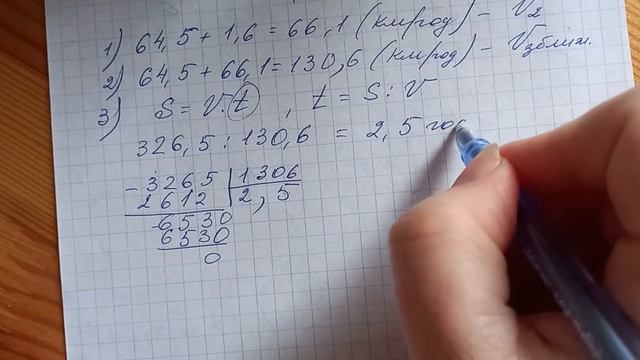 1) 64,5 + 1,6 = 66,1 (км/год) - V2
2) 64,5 + 66,1 = 130,6 (км/год) - Vзближ.
3) S = V·t, t = S : V
326,5 : 130,6 = 2,5 год
- 3265 | 1306
2612 | 2,5
- 6530
6530
0